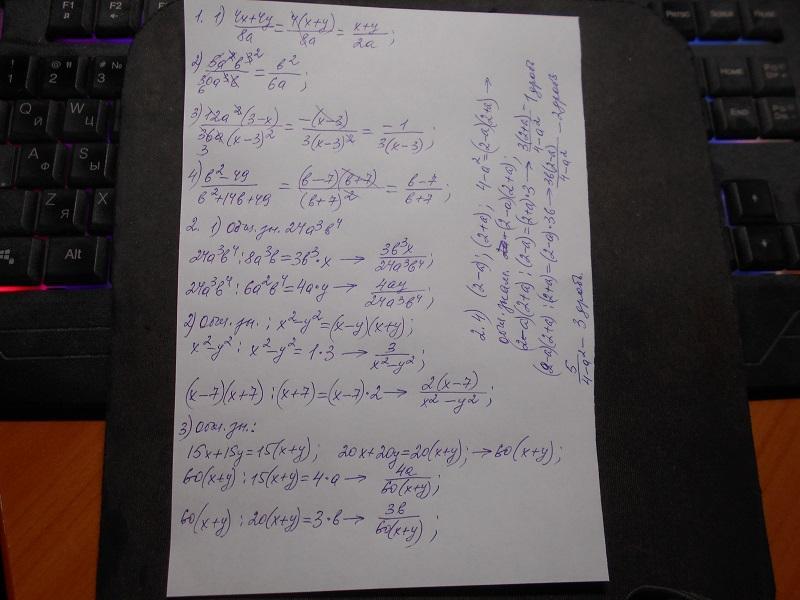 1. 1) 4x+4y/8a = 4(x+y)/8a = x+y/2a ;
2) 5a²b³²/30a³b = b²/6a ;
6
3) 12a²(3-x)/36a(x-3)² = -(x-3)/3(x-3)² = -1/3(x-3) ;
3
4) b²-49/b²+14b+49 = (b-7)(b+7)/(b+7)² = b-7/b+7 ;
2. 1) Общ. зн. 24a³b⁴
24a³b⁴ : 8a³b = 3b³·x → 3b³x/24a³b⁴ ;
24a³b⁴ : 6a²b⁴ = 4a·y → 4ay/24a³b⁴ ;
2) Общ. зн. ; x²-y² = (x-y)(x+y) ;
x²-y² : x²-y² = 1·3 → 3/x²-y² ;
(x-7)(x+7) : (x+7) = (x-7)·2 → 2(x-7)/x²-y² ;
3) Общ. зн.:
15x+15y = 15(x+y) ; 20x+20y = 20(x+y) ; → 60(x+y) ;
60(x+y) : 15(x+y) = 4·a → 4a/60(x+y) ;
60(x+y) : 20(x+y) = 3·b → 3b/60(x+y) ;
2. 4) (2-a) ; (2+a) ; 4-a² = (2-a)(2+a) →
общ. знам. (2-a)(2+a) ;
(2-a)(2+a) : (2-a) = (2+a)·3 → 3(2+a)/4-a² - 1 дробь
(2-a)(2+a) : (2+a) = (2-a)·3b → 3b(2-a)/4-a² - 2 дробь
5/4-a² - 3 дробь
F1
F2
F11
F12
PAUSE
HOME
END
!
1
@
2
#
3
Q
Й
W
Ц
A
Ф
S
Ы
Z
Я
X
Alt